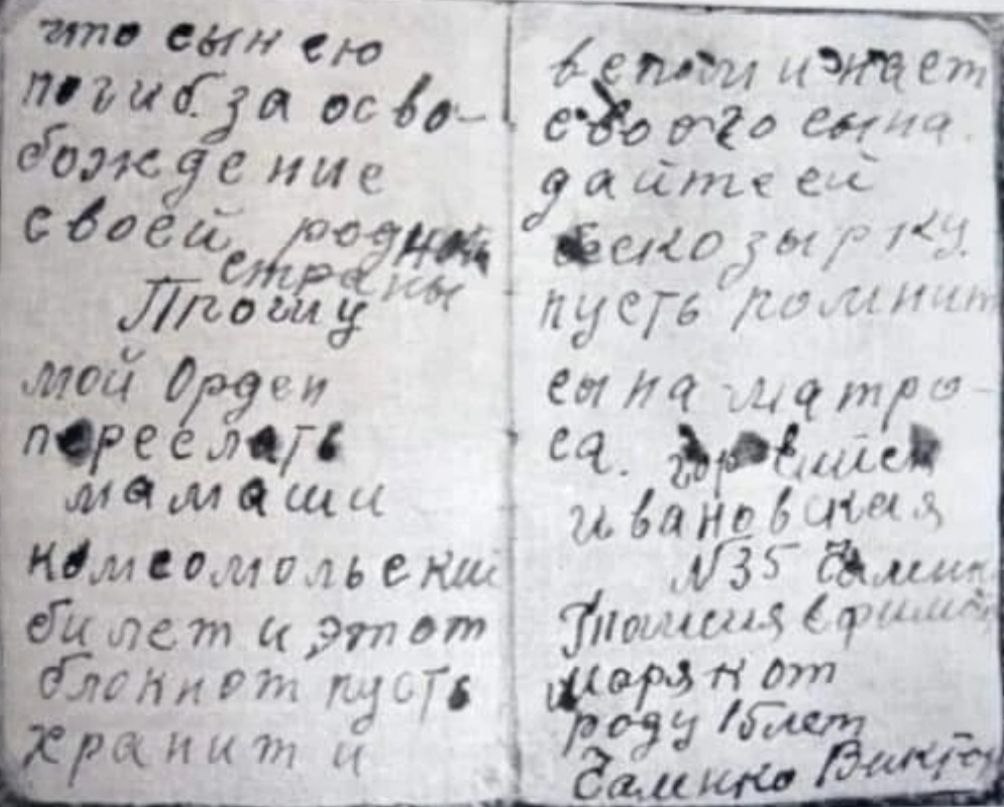 что сын ею
погиб. за осво-
бождение
своей родной
страны
Прошу
мой Орден
переслать
мамаши
комсомольский
билет и этот
блокнот пусть
хранит и
вспоминает
своого сына.
дайте ей
бескозырку.
пусть помнит
сына матро-
са. гор
ивановская
№35 Чаленк
моряк от
роду 15 лет
Чаленко Виктор